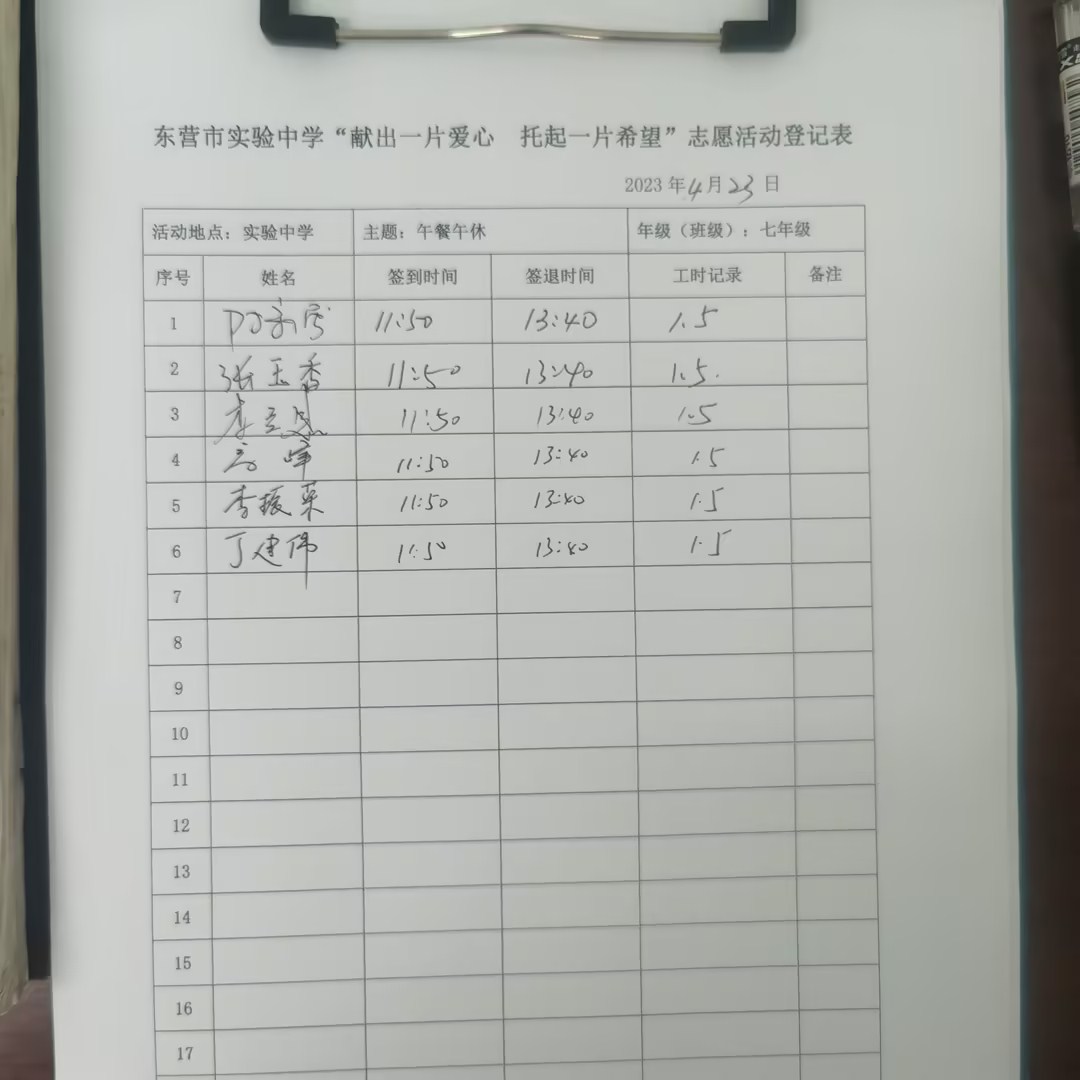 东营市实验中学“献出一片爱心 托起一片希望”志愿活动登记表
2023年4月23日
活动地点：实验中学 主题：午餐午休 年级（班级）：七年级
序号 姓名 签到时间 签退时间 工时记录 备注
1 11:50 13:40 1.5
2 张玉香 11:50 13:40 1.5.
3 李 11:50 13:40 1.5
4 高峰 11:50 13:40 1.5
5 李振英 11:50 13:40 1.5
6 丁建伟 11:50 13:40 1.5
7
8
9
10
11
12
13
14
15
16
17